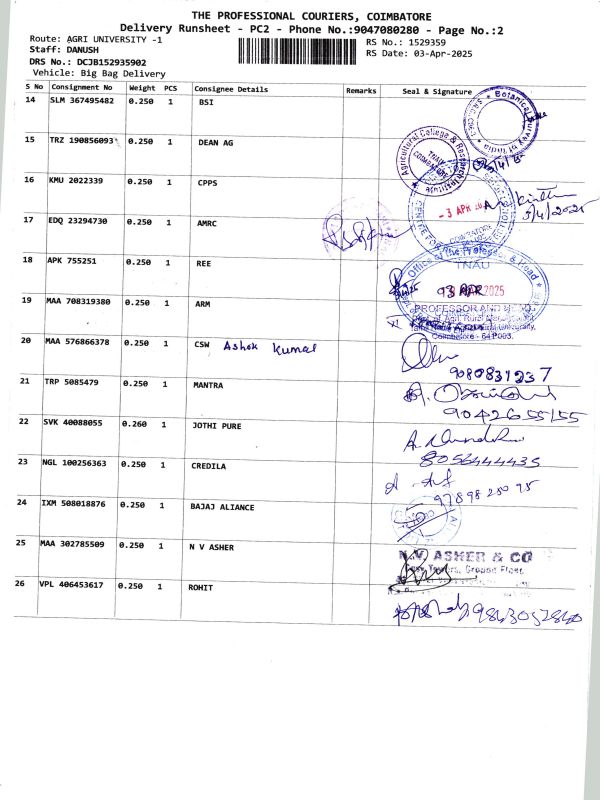 THE PROFESSIONAL COURIERS, COIMBATORE
Delivery Runsheet - PC2 - Phone No.:9047080280 - Page No.:2
Route: AGRI UNIVERSITY -1
RS No.: 1529359
Staff: DANUSH
RS Date: 03-Apr-2025
DRS No.: DCJB152935902
Vehicle: Big Bag Delivery
S No Consignment No Weight PCS Consignee Details Remarks Seal & Signature
14 SLM 367495482 0.250 1 BSI
15 TRZ 190856093 0.250 1 DEAN AG
Agricultural College & Research Institute
TNAU
16 KMU 2022339 0.250 1 CPPS
- 3 APR
3/4/2025
17 EDQ 23294730 0.250 1 AMRC
18 APK 755251 0.250 1 REE
Office of the Professor & Head
TNAU
19 MAA 708319380 0.250 1 ARM
APR 2025
PROFESSOR AND HEAD
Coimbatore - 641 003.
20 MAA 576866378 0.250 1 CSW Ashok Kumar
9080831237
21 TRP 5085479 0.250 1 MANTRA
9042655155
22 SVK 40088055 0.260 1 JOTHI PURE
8056444435
23 NGL 100256363 0.250 1 CREDILA
97898 250 95
24 IXM 508018876 0.250 1 BAJAJ ALIANCE
25 MAA 302785509 0.250 1 N V ASHER
N.V. ASHER & CO
Towers, Ground Floor,
26 VPL 406453617 0.250 1 ROHIT
9843052840